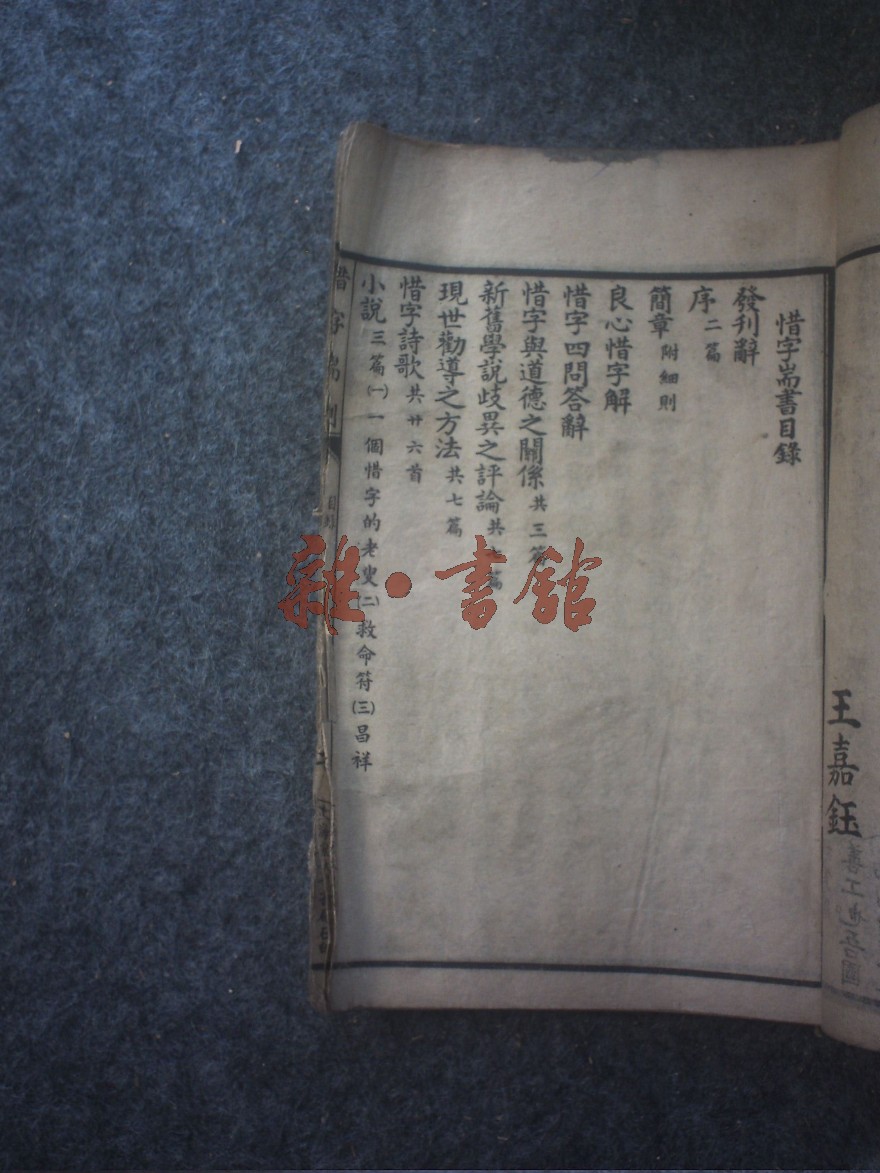 王嘉鈺
惜字耑書目錄
發刊辭
序 二篇
簡章 附細則
良心惜字解
惜字四問答辭
惜字與道德之關係 共三篇
新舊學說歧異之評論 共 篇
現世勸導之方法 共七篇
惜字詩歌 共廿六首
小說 三篇 (一)一個惜字的老叟 (二)救命符 (三)昌祥
惜字
目錄
雜·書館